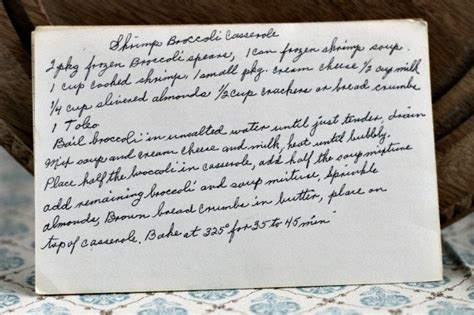 Shrimp Broccoli Casserole
2 pkg frozen Broccoli spears, 1 can frozen shrimp soup.
1 cup cooked shrimp, 1 small pkg. cream cheese ½ cup milk
¼ cup slivered almonds ½ cup crackers or bread crumbs
1 T oleo
Boil broccoli in unsalted water until just tender, drain
Mix soup and cream cheese and milk, heat until bubbly.
Place half the broccoli in casserole, add half the soup mixture
add remaining broccoli and soup mixture, Sprinkle
almonds, Brown bread crumbs in butter, place on
top of casserole. Bake at 325° for 35 to 45 min